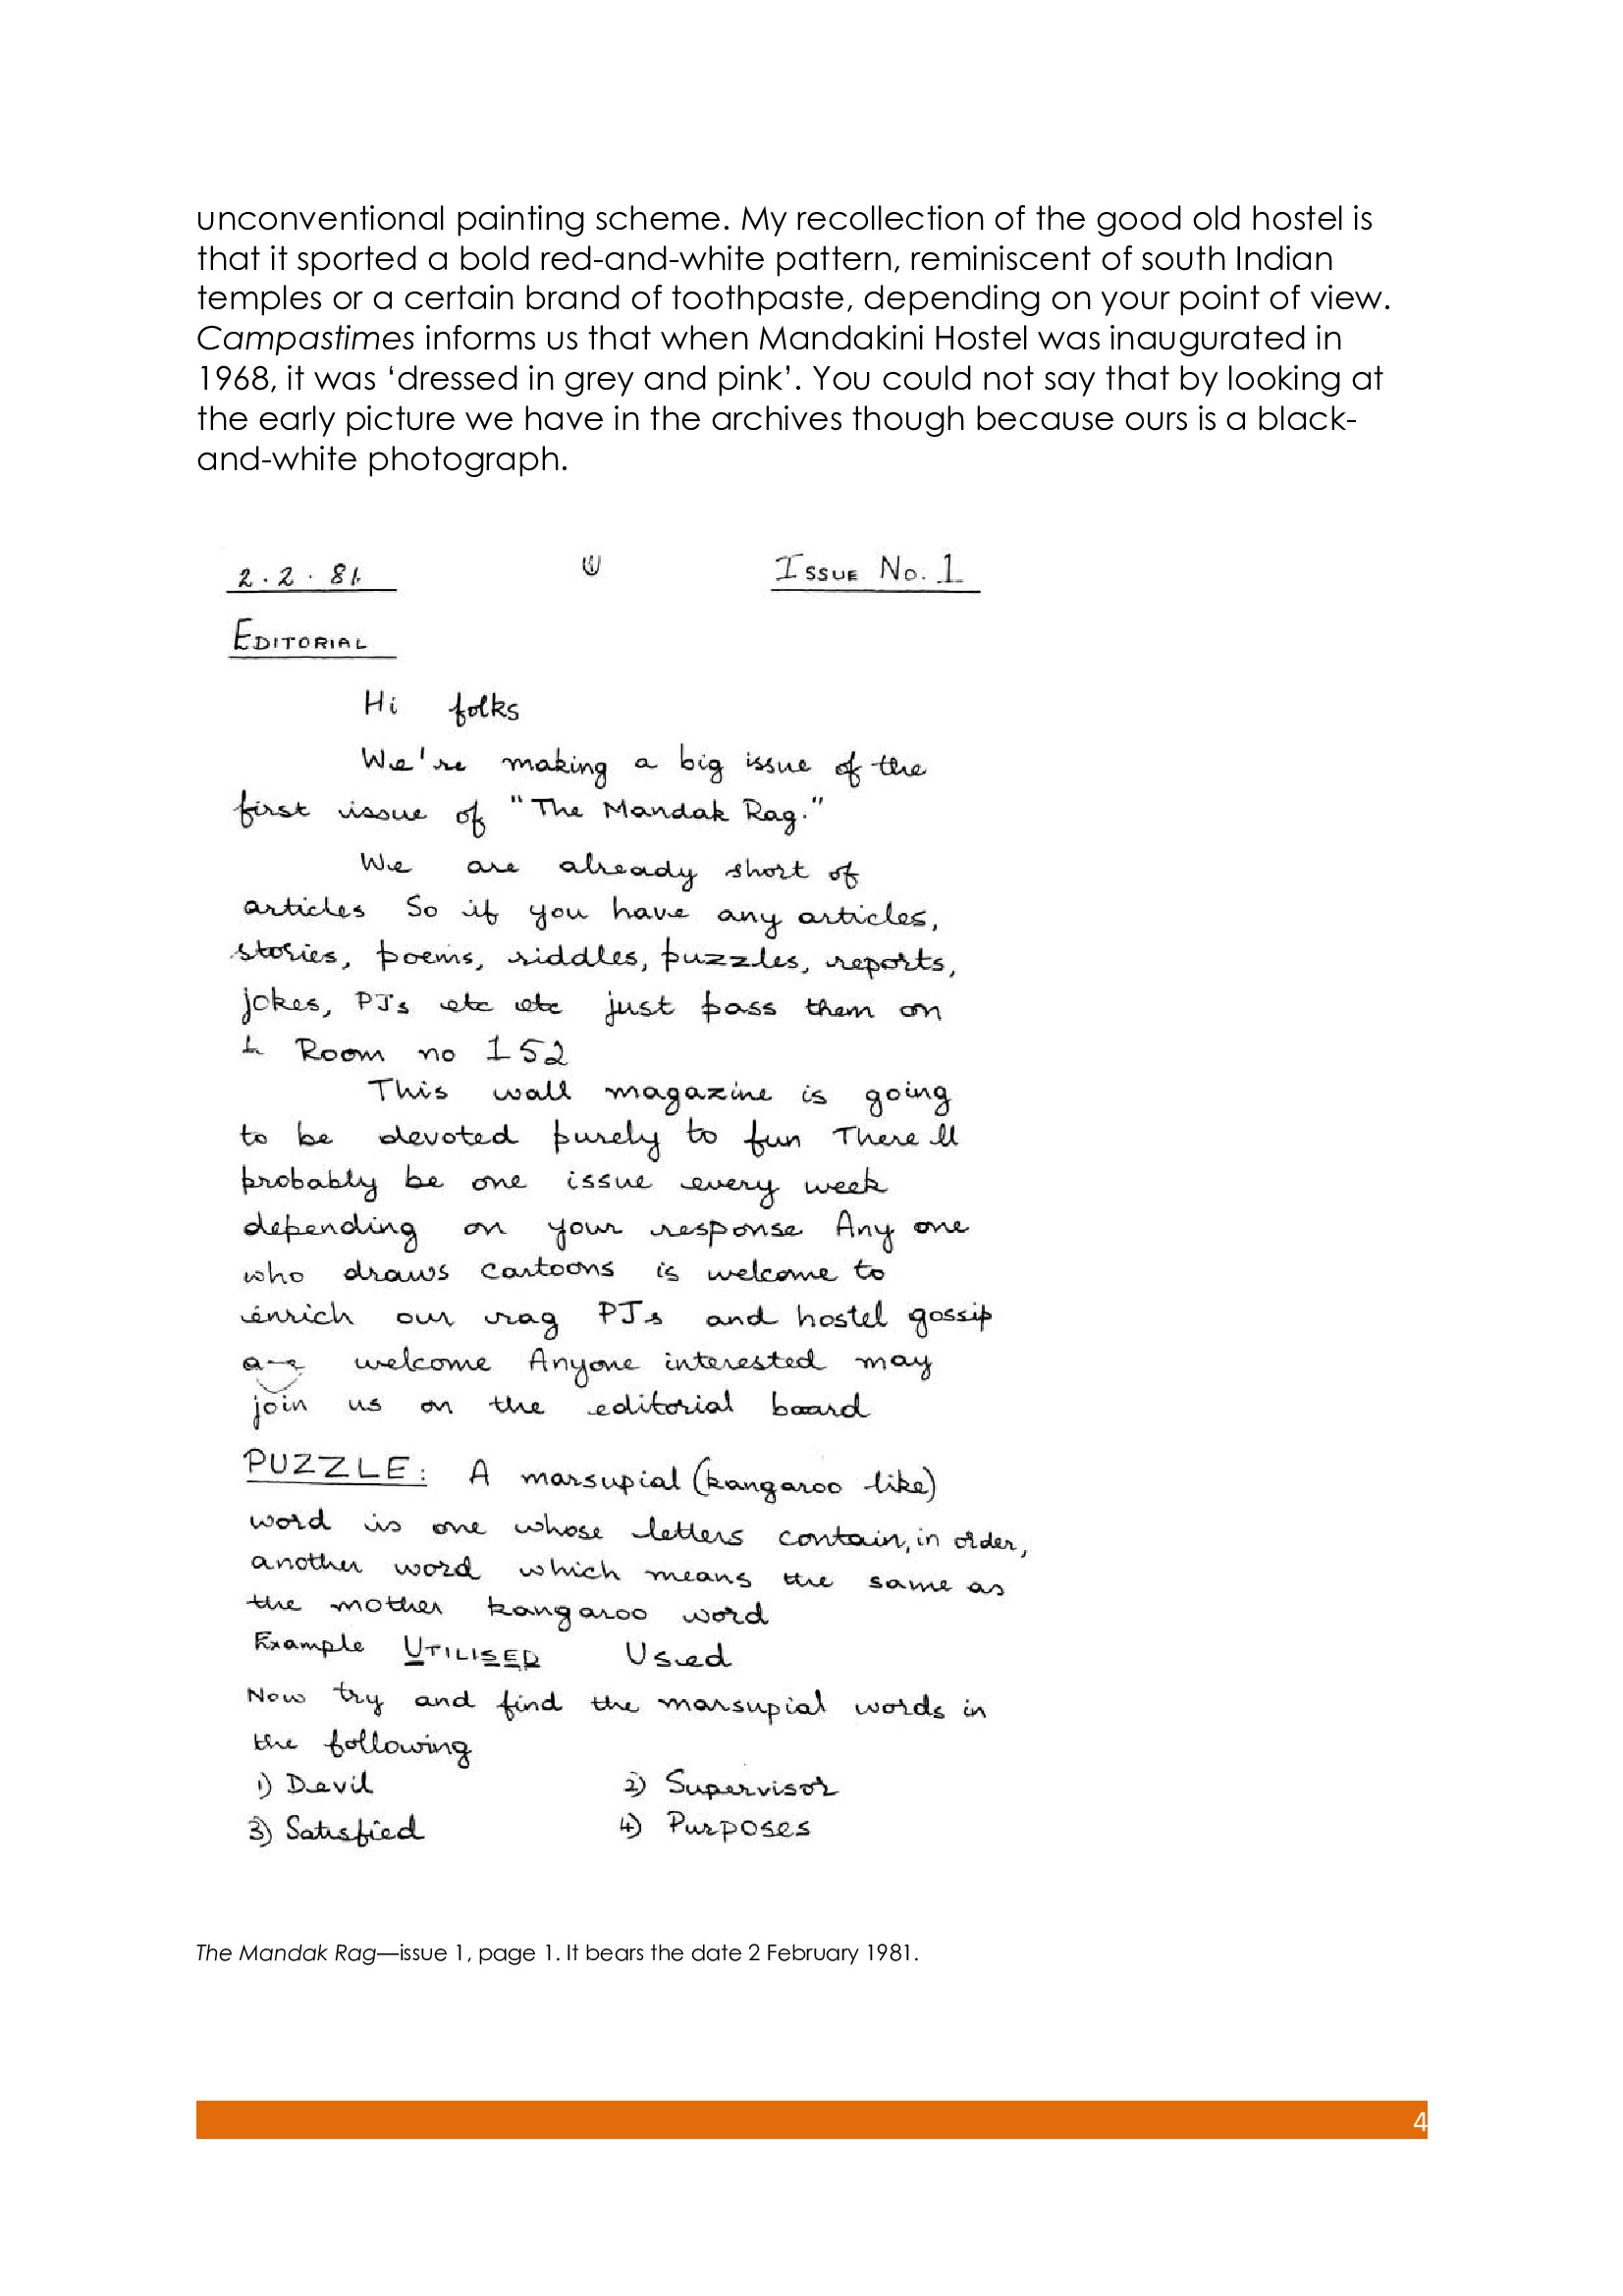 unconventional painting scheme. My recollection of the good old hostel is
that it sported a bold red-and-white pattern, reminiscent of south Indian
temples or a certain brand of toothpaste, depending on your point of view.
Campastimes informs us that when Mandakini Hostel was inaugurated in
1968, it was ‘dressed in grey and pink’. You could not say that by looking at
the early picture we have in the archives though because ours is a black-
and-white photograph.
2.2.81. Issue No. 1
EDITORIAL
Hi folks
We're making a big issue of the
first issue of "The Mandak Rag."
We are already short of
articles So if you have any articles,
stories, poems, riddles, puzzles, reports,
jokes, PJs etc etc just pass them on
Room no 152
This wall magazine is going
to be devoted purely to fun There ll
probably be one issue every week
depending on your response Any one
who draws cartoons is welcome to
enrich our rag PJs and hostel gossip
welcome Anyone interested may
join us on the editorial board
PUZZLE: A marsupial (kangaroo like)
word is one whose letters contain, in order,
another word which means the same as
the mother kangaroo word
Example UTILISED Used
Now try and find the marsupial words in
the following
1) Devil 2) Supervisor
3) Satisfied 4) Purposes
The Mandak Rag—issue 1, page 1. It bears the date 2 February 1981.
4